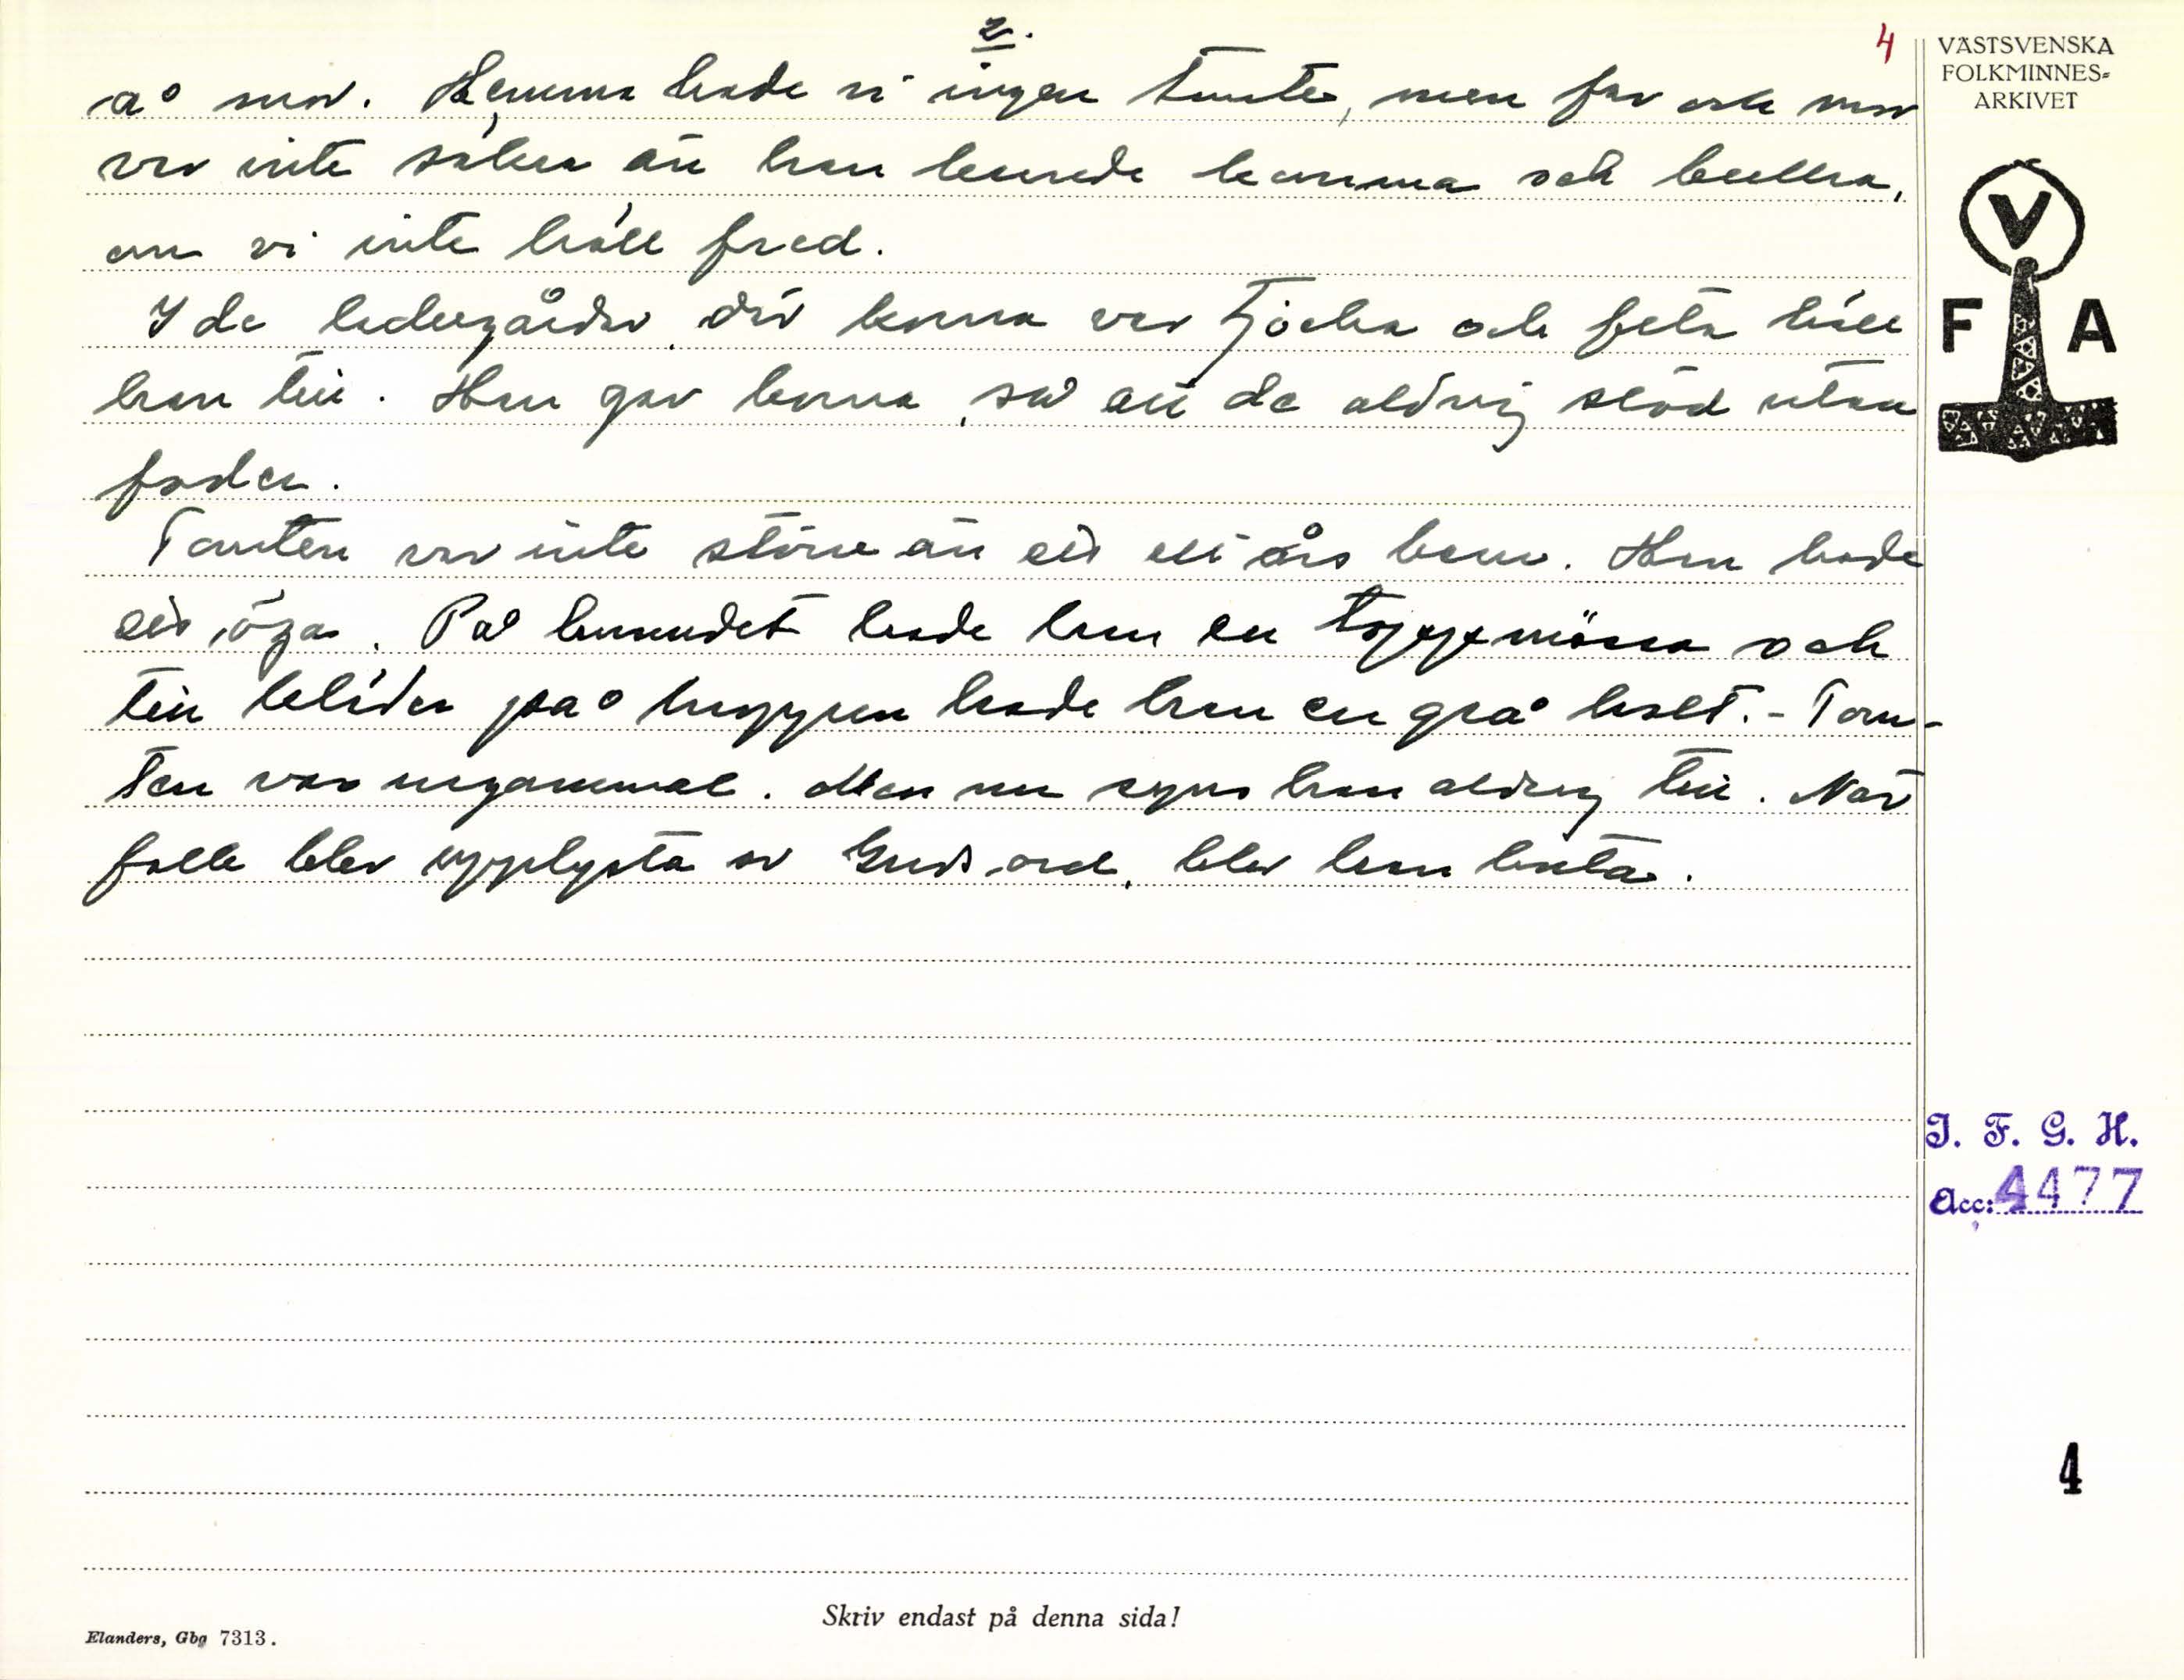 2.
4
VÄSTSVENSKA
FOLKMINNES=
ARKIVET
å mor. Hemma hade vi ingen tomte, men far och mor
var inte säkra än han kunde komma och bullra,
om vi inte höll fred.
V
F A
I de ladugårdar, där korna var tjocka och feta höll
han till. Han gav korna, så att de aldrig stod utan
foder.
Tomten var inte större än ett ett års barn. Han hade
ett öga. På huvudet hade han en toppmössa och
till kläder på kroppen hade han en grå kolt. - Tom-
ten var urgammal. Men nu syns han aldrig till. När
folk blev upplysta av Guds ord, blev han borta.
I. F. G. H.
Acc: 4477
4
Skriv endast på denna sida!
Elanders, Gbg 7313.